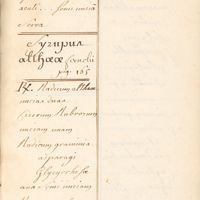 acuti.. fiant uncia
Serva
Syrupus
altheæ fernelii
pg 165
℞. Radicum altheæ
uncias duas
Cicerum Rubrorum
unciam unam
Radicum graminis
asparagi
Glycyrrhisæ
ana . . unc unciam